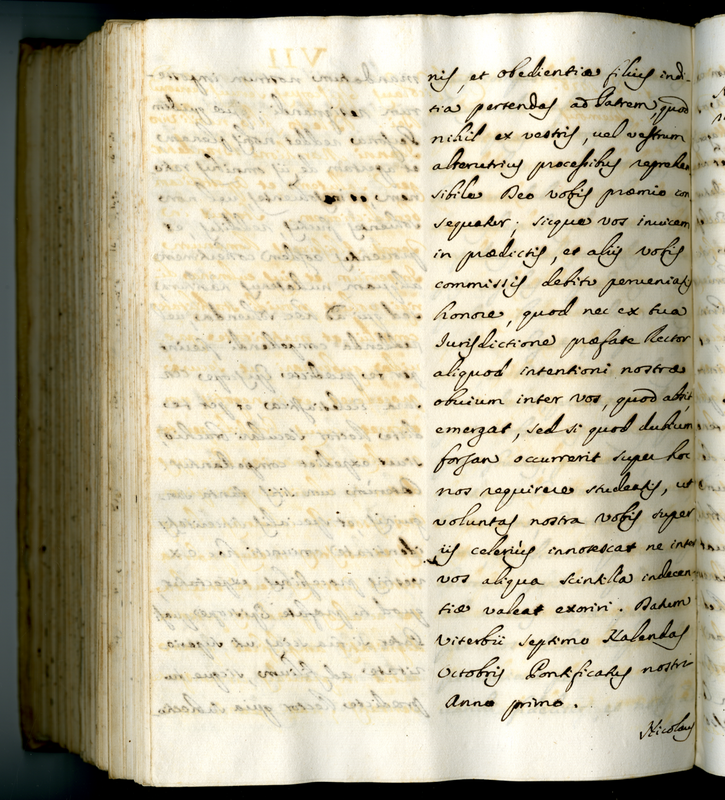 nis, et obedientiæ filius indi-
tia pertendas ad Patrem, quod
nihil ex vestris, vel vestrum
alterutrius processibus reprehen
sibile Deo vobis præmio con
sequater; sicque vos invicem
in prædictis, et aliis vobis
commissis debito perveniatis
honore, quod nec ex tua
Jurisdictione præfate Rector
aliquod intentioni nostræ
obvium inter vos, quod absit,
emergat, sed si quod dubium
forsan occurrerit super hoc
nos requirere studeatis, ut
voluntas nostra vobis super
iis celerius innotescat ne inter
vos aliqua scintilla indecen
tiæ valeat exoriri. Datum
Viterbii septimo Kalendas
Octobris Pontificatus nostri
Anno primo.
Nicolaus